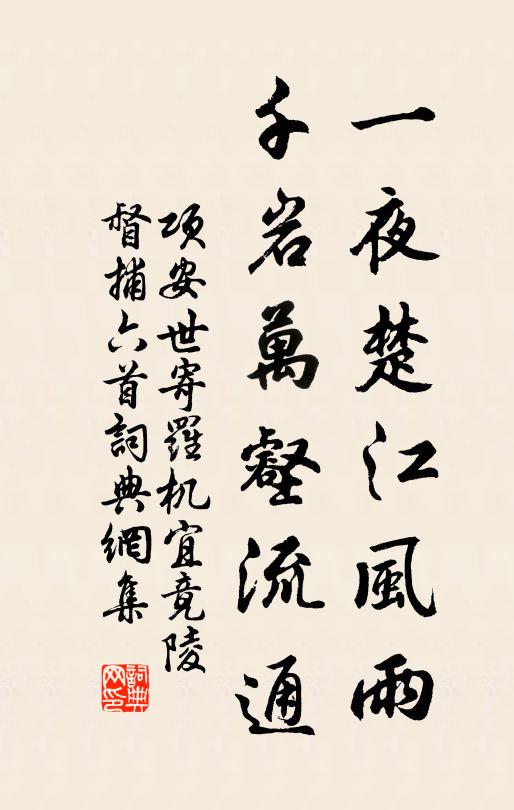 一夜楚江風雨
千岩萬壑流通
項安世寄羅机宜竟陵
督捕六首詞典網集
詞典
网印